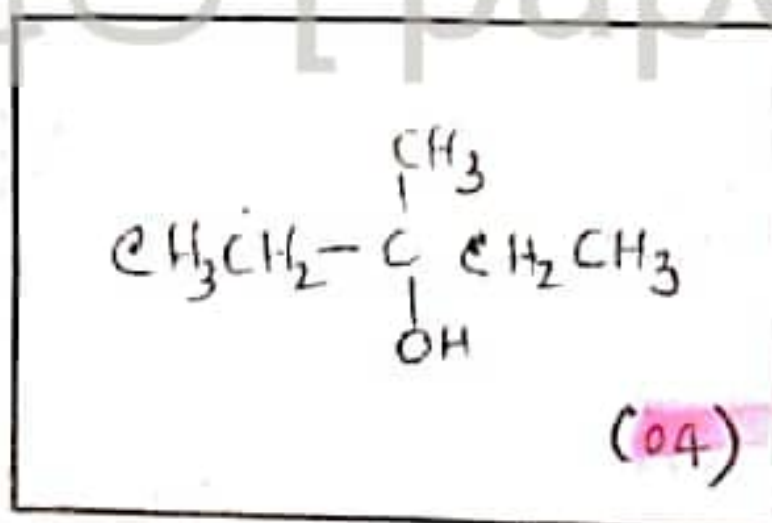 CH3
CH3CH2-C CH2CH3
OH
(04)